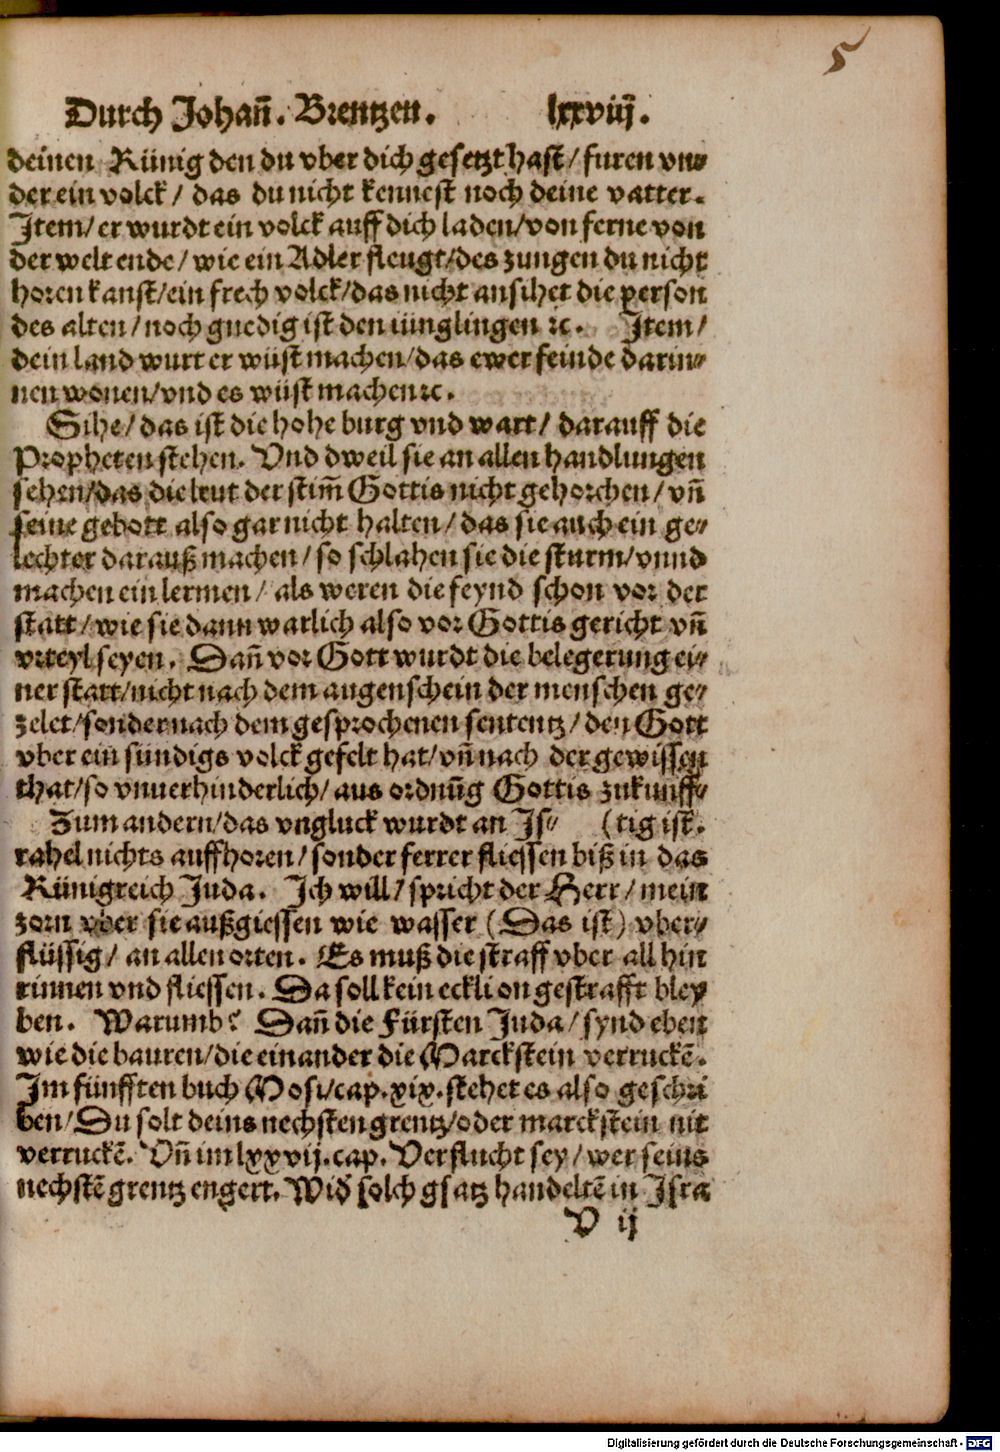 5
Durch Johañ. Brentzen. lxxviij.
deinen Künig den du vber dich gesetzt hast/ furen vn⸗
der ein volck/ das du nicht kennest noch deine vatter.
Item/ er wurdt ein volck auff dich laden/ von ferne von
der welt ende/ wie ein Adler fleugt/ des zungen du nicht
horen kanst/ ein frech volck/ das nicht ansihet die person
des alten/ noch gnedig ist den iünglingen ꝛc. Item/
dein land wurt er wüst machen/ das ewer feinde darin⸗
nen wonen/ vnd es wüst machen ꝛc.
Sihe/ das ist die hohe burg vnd wart/ darauff die
Propheten stehen. Vnd dweil sie an allen handlungen
sehen/ das die leut der stim̃ Gottis nicht gehorchen/ vñ
seine gebott also gar nicht halten/ das sie auch ein ge⸗
lechter darauß machen/ so schlahen sie die sturm/ vnnd
machen ein lermen/ als weren die feynd schon vor der
statt/ wie sie dann warlich also vor Gottis gericht vñ
vrteyl seyen. Dañ vor Gott wurdt die belegerung ei⸗
ner statt/ nicht nach dem augenschein der menschen ge⸗
zelet/ sonder nach dem gesprochenen sententz/ den Gott
vber ein sündigs volck gefelt hat/ vñ nach der gewissen
that/ so vnuerhinderlich/ aus ordnũg Gottis zukunff⸗
Zum andern/ das vngluck wurdt an Is⸗ (tig ist.
rahel nichts auffhoren/ sonder ferrer fliessen biß in das
Künigreich Juda. Ich will/ spricht der Herr/ mein
zorn vber sie außgiessen wie wasser (Das ist) vber⸗
flüssig/ an allen orten. Es muß die straff vber all hin
rinnen vnd fliessen. Da soll kein eckli on gestrafft bley
ben. Warumb? Dañ die Fürsten Juda/ synd eben
wie die bauren/ die einander die Marckstein verruckẽ.
Im fünfften buch Mosi/ cap. xix. stehet es also geschri
ben/ Du solt deins nechsten grentz/ oder marckstein nit
verruckẽ. Vñ im lxxvij. cap. Verflucht sey/ wer seins
nechstẽ grentz engert. Wid̃ solch gsatz handeltẽ in Isra
V ij
Digitalisierung gefördert durch die Deutsche Forschungsgemeinschaft - DFG